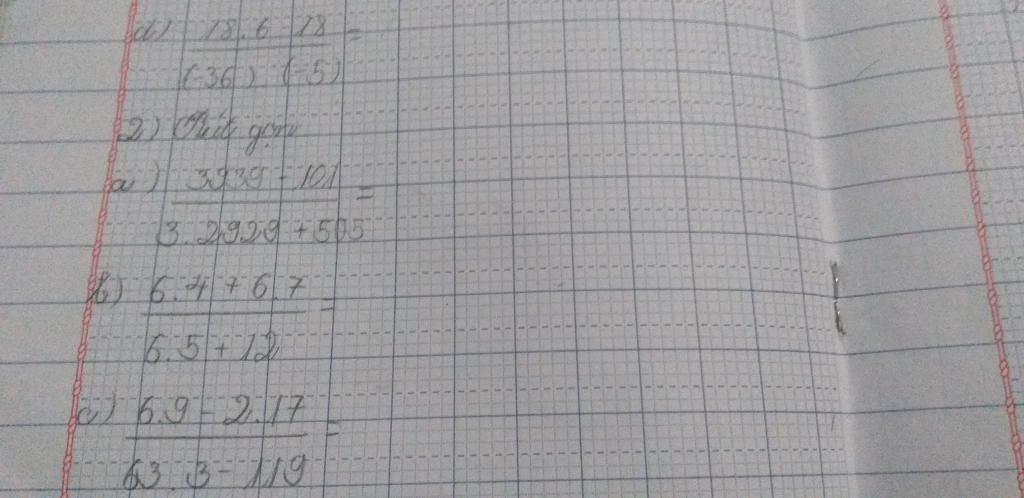 d) 18.6-18 =
(-36) (-5)
2) Rút gọn
a) 3939-101 =
3.2929+505
b) 6.4+6.7 =
6.5+12
c) 6.9-2.17 =
63.3-119